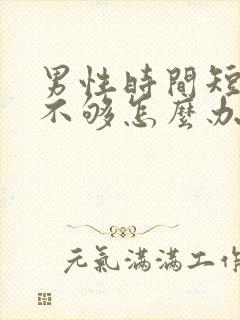 男性時間短
不够怎麼办
元氣滿滿工作